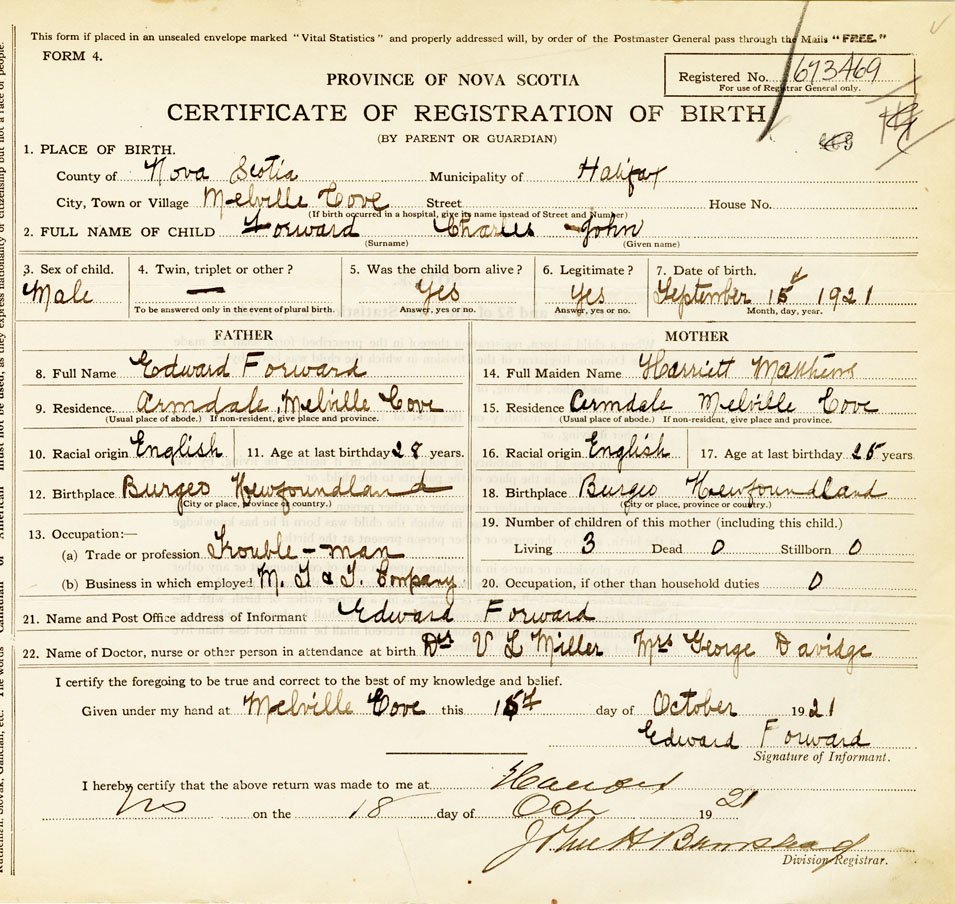 This form if placed in an unsealed envelope marked "Vital Statistics" and properly addressed will, by order of the Postmaster General pass through the Mails "FREE."
FORM 4.
PROVINCE OF NOVA SCOTIA
Registered No. 673469
For use of Registrar General only.
CERTIFICATE OF REGISTRATION OF BIRTH
(BY PARENT OR GUARDIAN)
1. PLACE OF BIRTH.
County of Nova Scotia Municipality of Halifax
City, Town or Village Melville Cove Street House No.
(If birth occurred in a hospital, give its name instead of Street and Number)
2. FULL NAME OF CHILD Forward Charles John
(Surname) (Given name)
3. Sex of child. 4. Twin, triplet or other? 5. Was the child born alive? 6. Legitimate? 7. Date of birth.
Male — Yes Yes September 15 1921
To be answered only in the event of plural birth. Answer, yes or no. Answer, yes or no. Month, day, year.
FATHER MOTHER
8. Full Name Edward Forward 14. Full Maiden Name Harriett Matthews
9. Residence Armdale, Melville Cove 15. Residence Armdale Melville Cove
(Usual place of abode.) If non-resident, give place and province. (Usual place of abode.) If non-resident, give place and province.
10. Racial origin English 11. Age at last birthday 28 years. 16. Racial origin English 17. Age at last birthday 25 years
12. Birthplace Burgeo Newfoundland 18. Birthplace Burgeo Newfoundland
(City or place, province or country.) (City or place, province or country.)
13. Occupation:— 19. Number of children of this mother (including this child.)
(a) Trade or profession Trouble-man Living 3 Dead 0 Stillborn 0
(b) Business in which employed M. T & T. Company 20. Occupation, if other than household duties 0
21. Name and Post Office address of Informant Edward Forward
22. Name of Doctor, nurse or other person in attendance at birth Drs V L Miller Mrs George Davidge
I certify the foregoing to be true and correct to the best of my knowledge and belief.
Given under my hand at Melville Cove this 15 day of October 1921
Edward Forward
Signature of Informant.
I hereby certify that the above return was made to me at
NS on the 18 day of Oct 1921
John H
Division Registrar.